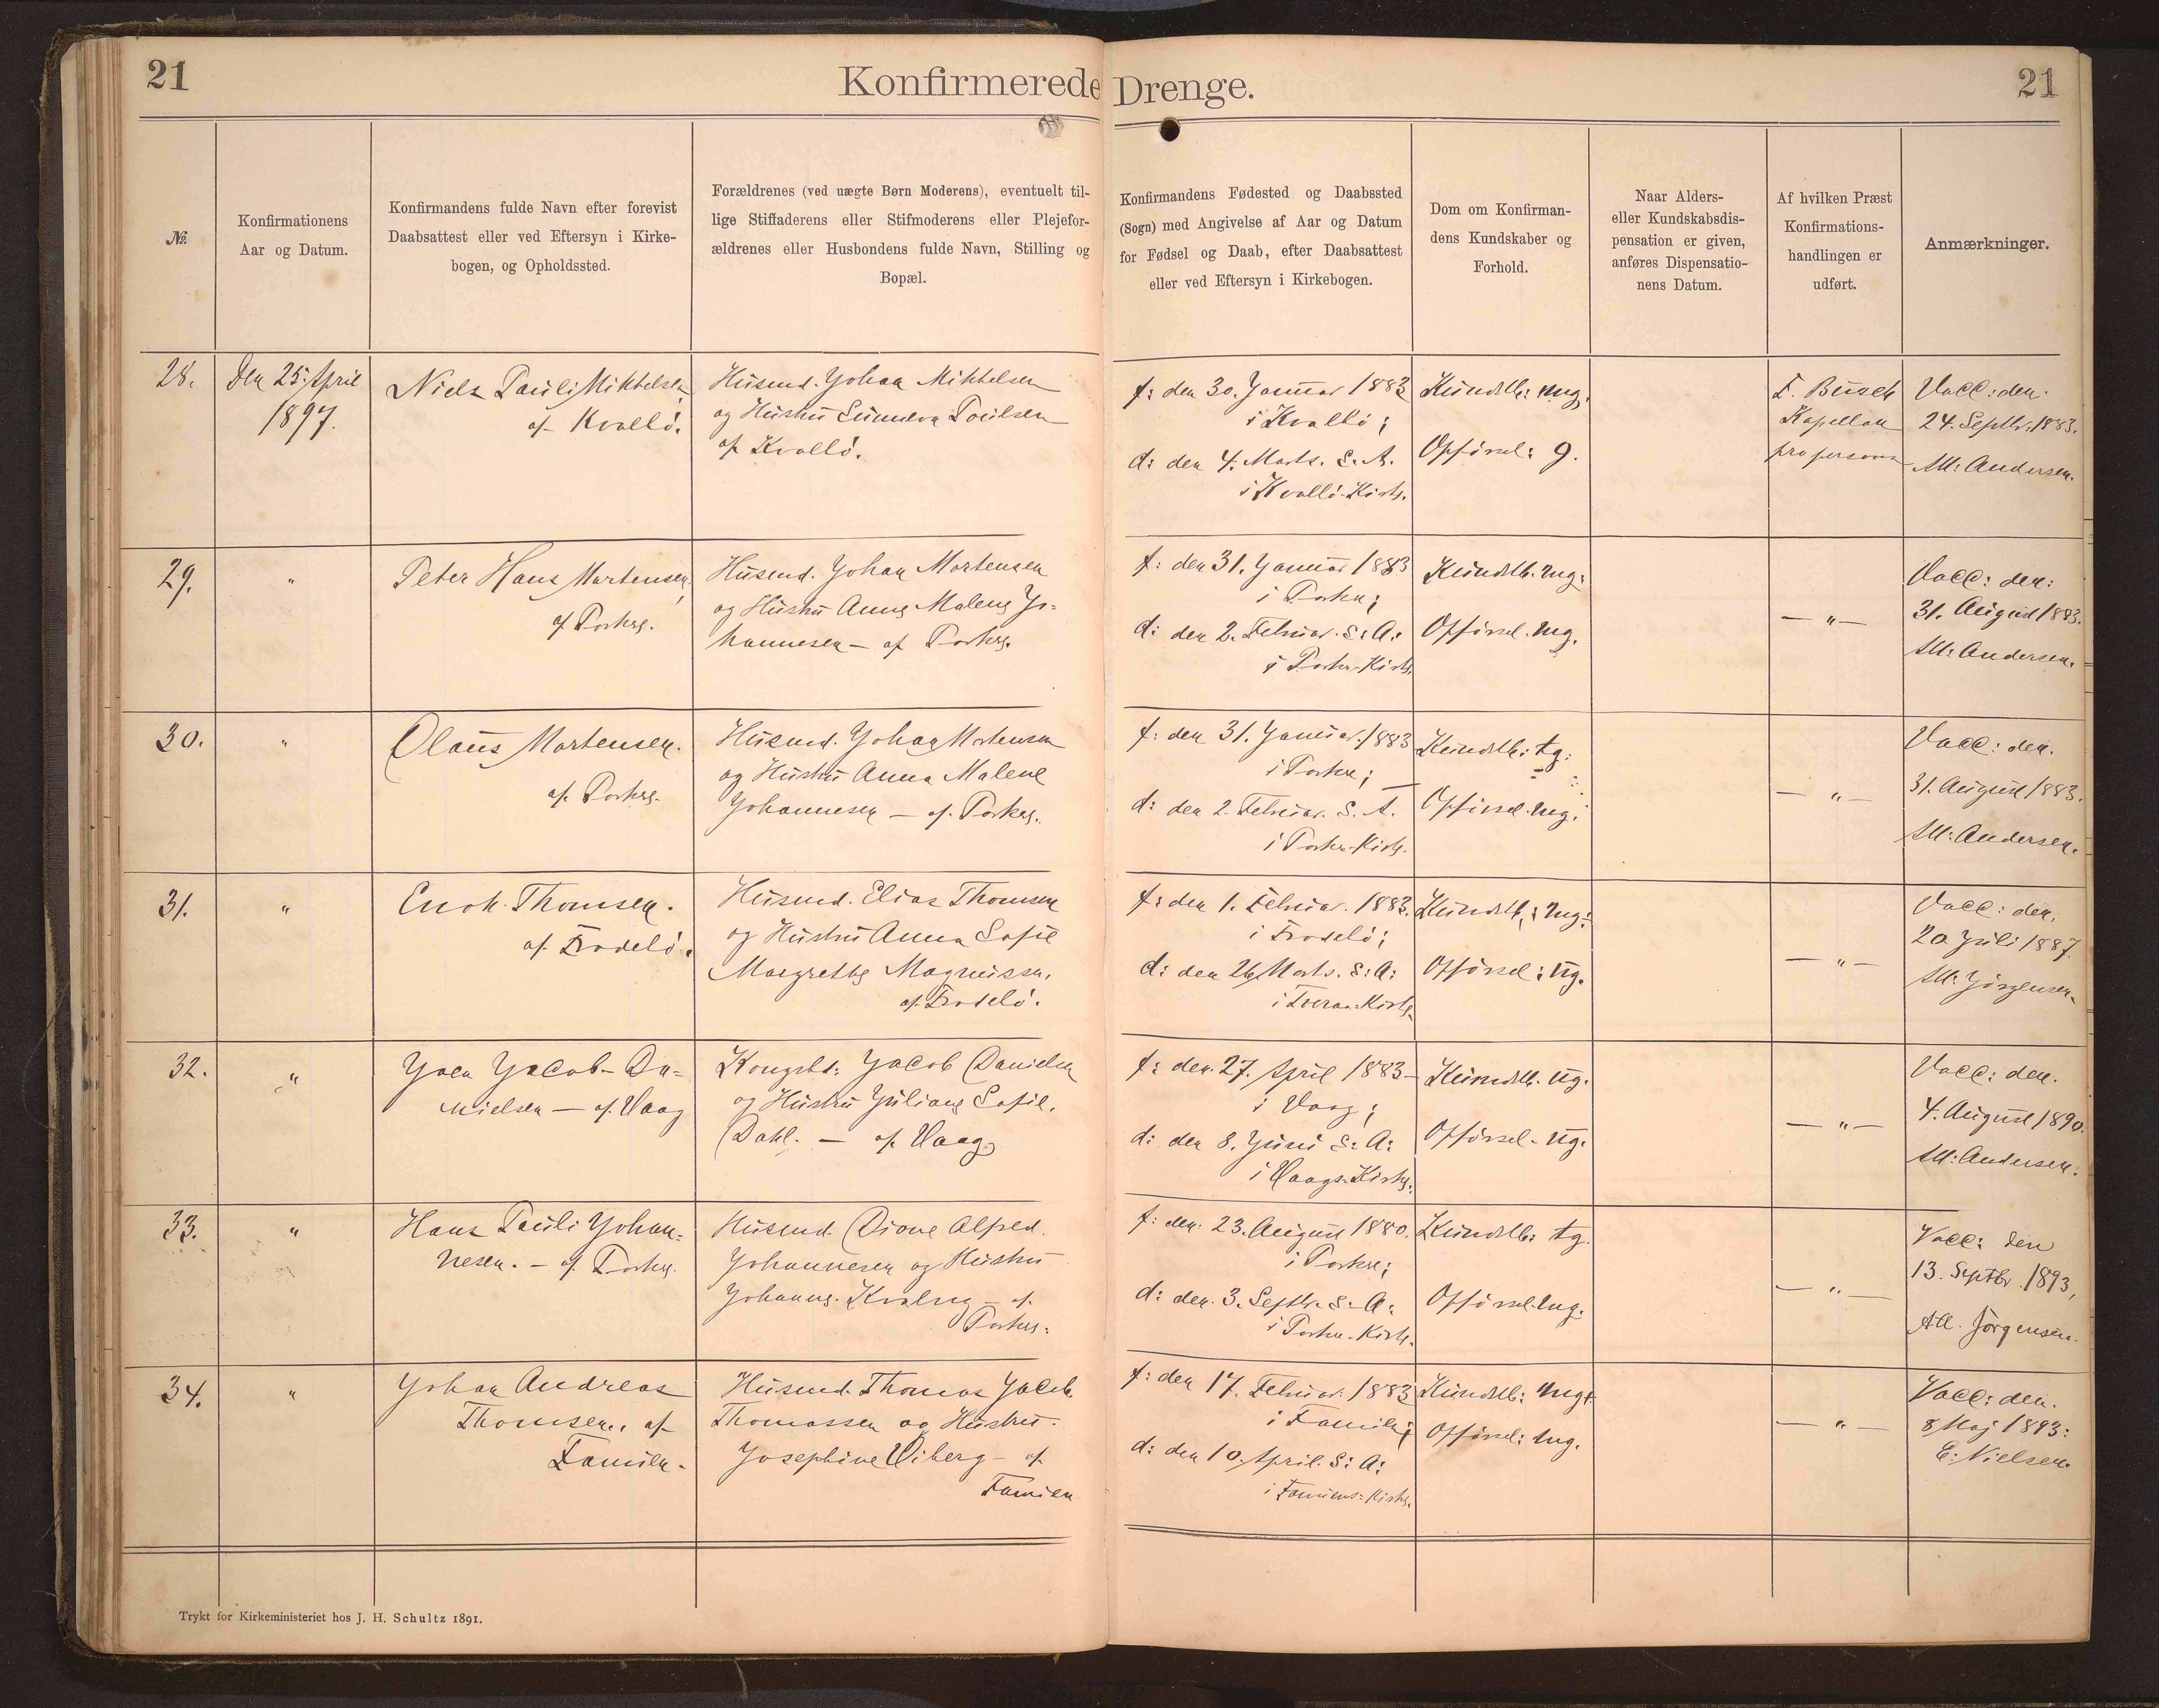 21
Konfirmerede Drenge.
21
No.
Konfirmationens
Aar og Datum.
Konfirmandens fulde Navn efter forevist
Daabsattest eller ved Eftersyn i Kirke-
bogen, og Opholdssted.
Forældrenes (ved uægte Børn Moderens), eventuelt til-
lige Stiffaderens eller Stifmoderens eller Plejefor-
ældrenes eller Husbondens fulde Navn, Stilling og
Bopæl.
Konfirmandens Fødested og Daabssted
(Sogn) med Angivelse af Aar og Datum
for Fødsel og Daab, efter Daabsattest
eller ved Eftersyn i Kirkebogen.
Dom om Konfirman-
dens Kundskaber og
Forhold.
Naar Alders-
eller Kundskabsdis-
pensation er given,
anføres Dispensatio-
nens Datum.
Af hvilken Præst
Konfirmations-
handlingen er
udført.
Anmærkninger.
28.
Den 25. April
1897.
Niels Pauli Mikkelsen
af Kvalbø.
Husmd. Johan Mikkelsen
og Hustru Poulsen
af Kvalbø.
f: den 30. Januar 1883
i Kvalbø;
d: den 4. Marts. S. A.
i Kvalbø-Kirke.
Kundsk: mg.
Opførsel: g.
F. Busch
Kapellan
pro persona
Vacc: den
24. Septbr. 1883.
Att: Andersen.
29.
"
Peter Hans Mortensen,
af Porkere.
Husmd. Johan Mortensen
og Hustru Anne Malene Jo-
hannesen — af Porkere.
f: den 31. Januar 1883
i Porkere;
d: den 2. Februar. S: A:
i Porkere-Kirke.
Kundsk. mg:
Opførsel. mg.
— " —
Vacc: den:
31. August 1883.
Att: Andersen.
30.
"
Olaus Mortensen.
af. Porkere.
Husmd. Johan Mortensen
og Hustru Anna Malene
Johannesen — af. Porkere.
f: den 31. Januar. 1883
i Porkere;
d: den 2. Februar. S. A.
i Porkere-Kirke.
Kundsk: tg:
Opførsel. mg.
— " —
Vacc: den.
31. August 1883.
Att: Andersen.
31.
"
Enok. Thomsen.
af. Frodebø.
Husmd. Elias Thomsen
og Hustru Anna Sofie
Margrethe Magnussen.
af. Frodebø.
f: den 1. Februar. 1883.
i Frodebø;
d: den 26. Marts. S: A:
i Tveraa-Kirke.
Kundsk.: mg:
Opførsel: ug.
— " —
Vacc: den.
20 Juli 1887.
Att: Jörgensen.
32.
"
Joen Jacob Da-
nielsen — af. Vaag
Kongsbd: Jacob Danielsen
og Hustru Juliane Sofie.
Dahl. — af. Vaag
f: den. 27. April 1883 -
i Vaag;
d: den 8. Juni S: A:
i Vaags-Kirke:
Kundsk. ug.
Opførsel - ug.
— " —
Vacc: den.
4. August 1890.
Att: Andersen.
33.
"
Hans Pauli Johan-
nesen. - af. Porkere.
Husmd. Dione Alfred.
Johannesen og Hustru
Johanne. - af.
Porkere:
f: den. 23. August 1880.
i Porkere;
d: den. 3. Septbr. S: A:
i Porkere-Kirke.
Kundsk: tg.
Opførsel. mg.
— " —
Vacc: den
13. Septbr. 1893,
Att. Jörgensen.
34.
"
Johan Andreas
Thomsen., af
Famien.
Husmd. Thomas Jacob
Thomassen og Hustru.
Josephine Viberg - af
Famien
f: den 17. Februar. 1883
i Famien;
d: den 10. April. S: A:
i Famiens-Kirke.
Kundsk: mg+
Opførsel: mg.
— " —
Vacc: den.
8 Maj 1893:
E: Nielsen.
Trykt for Kirkeministeriet hos J. H. Schultz 1891.